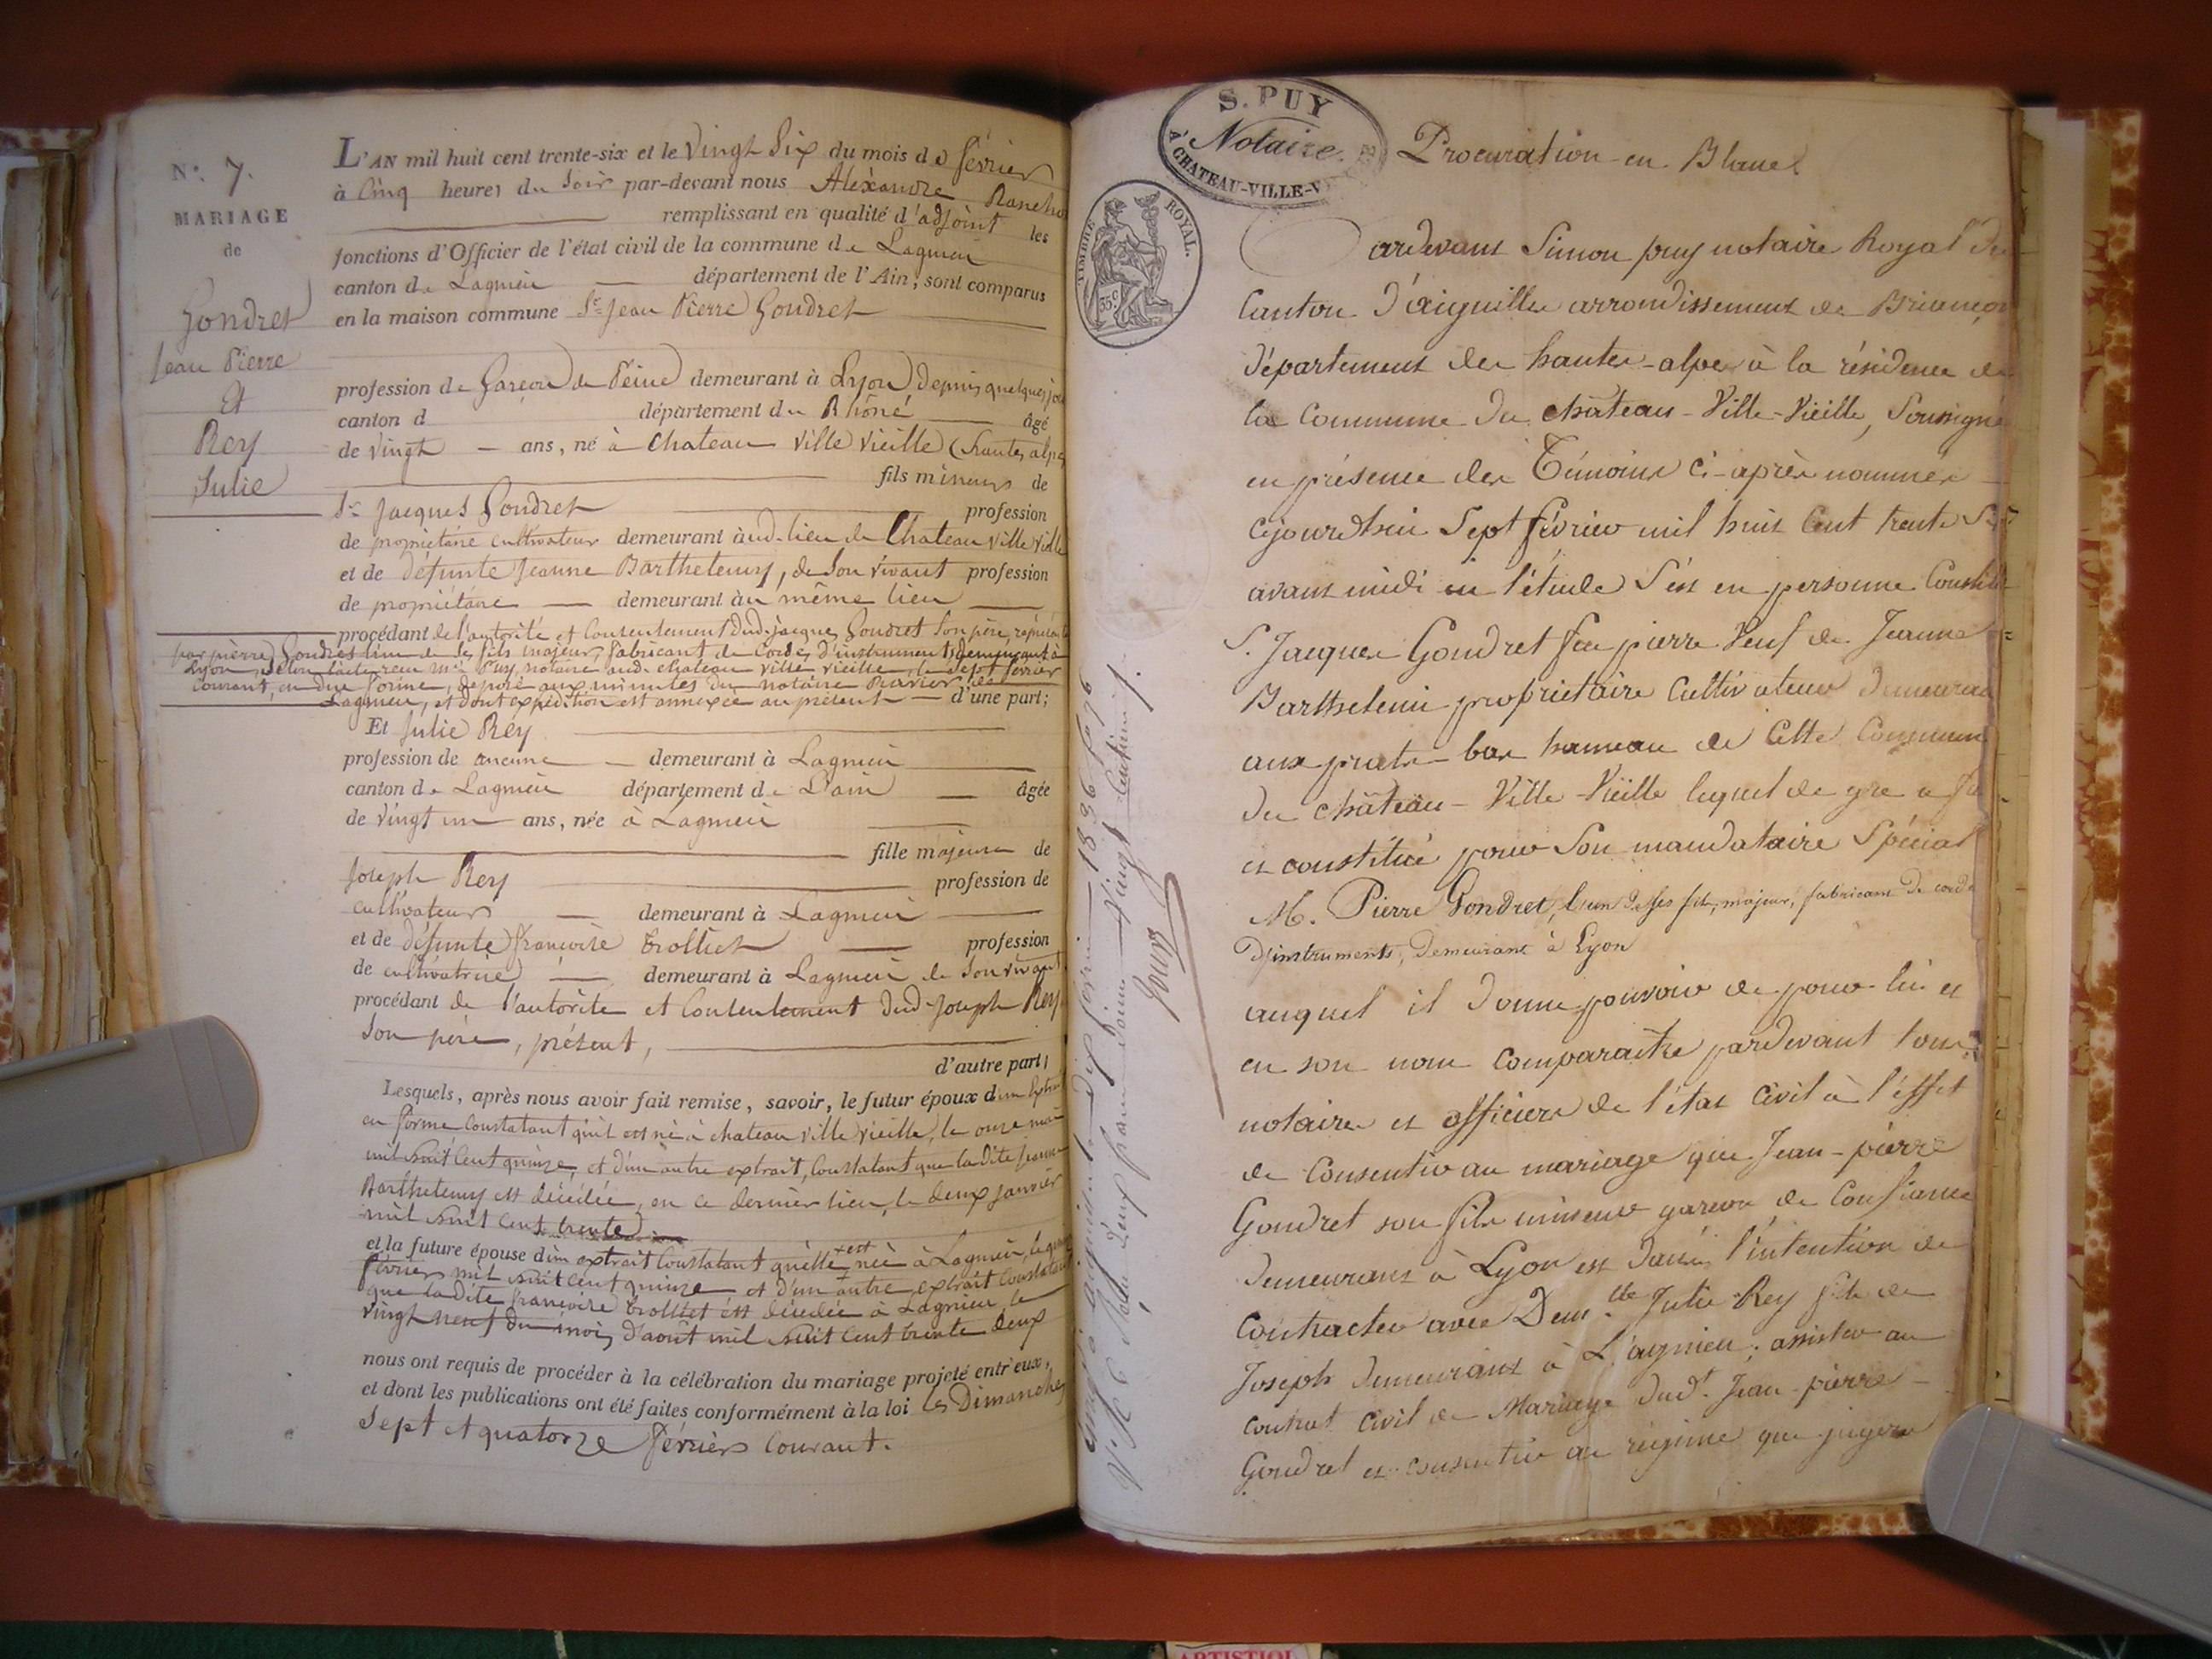 N.º 7.
MARIAGE
de
Gondret
Jean Pierre
Et
Rey
Julie
L'AN mil huit cent trente-six et le Vingt Six du mois de février
à Cinq heures du Soir par-devant nous Aléxandre
remplissant en qualité d'adjoint les
fonctions d'Officier de l'état civil de la commune de Lagnieu
canton de Lagnieu département de l'Ain, sont comparus
en la maison commune Sr. Jean Pierre Gondret
profession de Garçon de Peine demeurant à Lyon, depuis quelques
canton d département du Rhône âgé
de vingt — ans, né à Chateau Ville Vieille (hautes alpes
fils mineur de
Sr. Jacques Gondret profession
de propriétaire cultivateur demeurant aud. lieu de Chateau Ville Vieille
et de défunte Jeanne Barthelemy, de Son vivant profession
de propriétaire — demeurant au même lieu
procédant de l'autorité et Consentement dud. jacques Gondret Son père, représenté
par pierre Gondret l'un de ses fils majeur, fabricant de Cordes d'instruments, demeurant à
Lyon, Selon l'acte reçu Me. Puy notaire aud. chateau ville vieille, le Sept février
Courant, en due forme, déposé aux minutes du notaire
Lagnieu, et dont expédition est annexée au présent — d'une part;
Et Julie Rey
profession de aucune — demeurant à Lagnieu
canton de Lagnieu département de L'ain — âgée
de vingt un — ans, née à Lagnieu
fille majeure de
Joseph Rey profession de
cultivateur — demeurant à Lagnieu
et de défunte françoise trolliet profession
de cultivatrice — demeurant à Lagnieu de Son vivant
procédant de l'autorité et Consentement dud. Joseph Rey
Son père, présent,
d'autre part;
Lesquels, après nous avoir fait remise, savoir, le futur époux d'un Extrait
en forme Constatant qu'il est né à chateau ville vieille, le onze
mil huit Cent quinze, et d'un autre extrait, Constatant que la dite Jeanne
Barthelemy est décédée, en ce dernier lieu, le deux janvier
mil huit Cent trente
et la future épouse d'un extrait Constatant quelle + est née à Lagnieu, le
février mil huit Cent quinze et d'un autre extrait Constatant
que la dite françoise trolliet est décédée à Lagnieu, le
vingt neuf du mois d'août mil huit Cent trente deux
nous ont requis de procéder à la célébration du mariage projeté entr'eux,
et dont les publications ont été faites conformément à la loi les Dimanches
Sept et quatorze février Courant.
S. PUY
Notaire.
À CHATEAU-VILLE-V
TIMBRE ROYAL.
35c
Procuration en Blanc
Pardevant Simon puy notaire Royal du
Canton d'aiguille arrondissement de Briançon
département des hautes-alpes à la résidence de
la Commune du château-Ville-Vieille, Soussigné
en présence des Témoins ci-après nommés
cejourd'hui Sept février mil huit Cent trente Six
avant midi en l'étude S'est en personne Constitué
S. Jacques Gondret feu pierre Veuf de Jeanne
Barthelemi propriétaire Cultivateur demeurant
aux prats-bas hameau de Cette Commune
du château-Ville-Vieille lequel de gré a fait
et constitué pour Son mandataire Spécial
M. Pierre Gondret, l'un de ses fils, majeur, fabricant de cordes
D'instruments, Demeurant à Lyon
auquel il donne pouvoir de pour-lui et
en son nom Comparaître pardevant tous
notaires et officiers de l'état Civil à l'effet
de Consentir au mariage que Jean-pierre
Gondret son fils mineur garçon de Confiance
demeurant à Lyon est dans l'intention de
Contracter avec Demlle Julie Rey fille de
Joseph demeurant à L'agnieu; assister au
contrat Civil de Mariage dudt. Jean-pierre
Gondret et consentir au régime que jugera